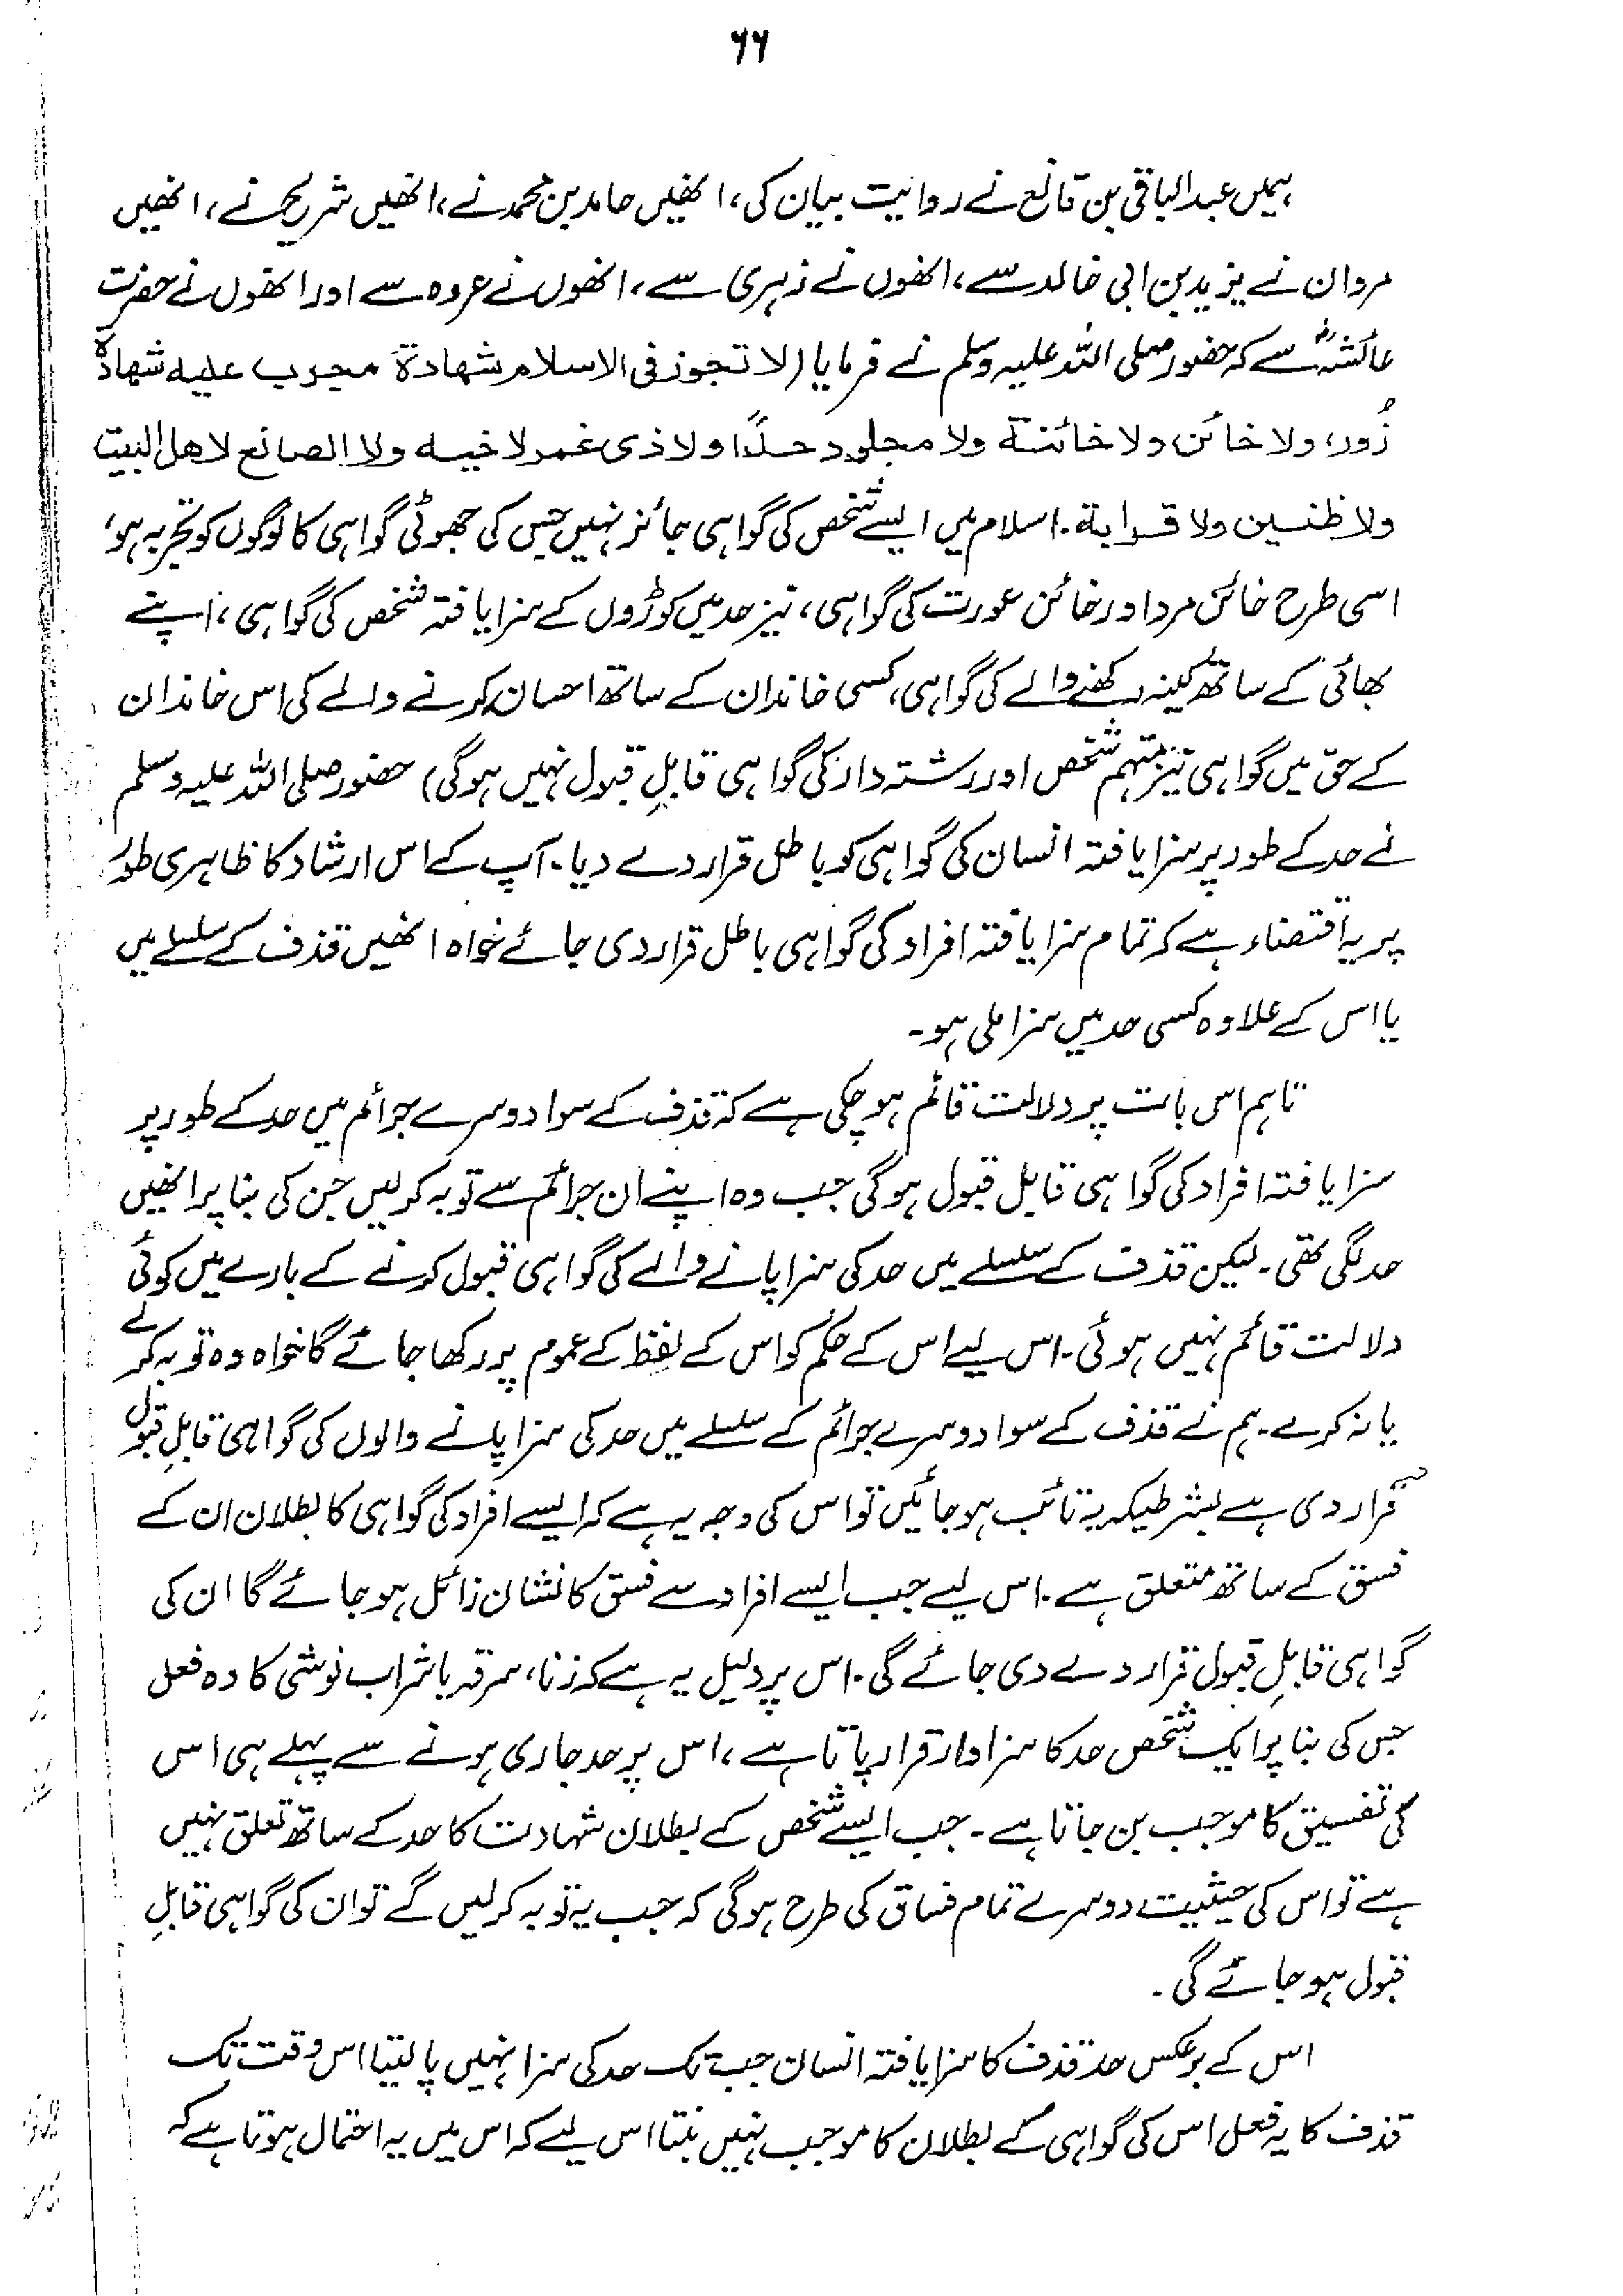 ۶۶
ہمیں عبدالباقی بن قانع نے روایت بیان کی، انھیں حامد بن محمد نے، انھیں شریح نے، انھیں
مروان نے یزید بن ابی خالد سے، انھوں نے زہری سے، انھوں نے عروہ سے اور انھوں نے حضرت
عائشہؓ سے کہ حضور صلی اللہ علیہ وسلم نے فرمایا (لا تجوز فی الاسلام شھادۃ مجرب علیہ شھادۃ
زُور، ولا خائن ولا خائنۃ ولا مجلود حدًا ولا ذی غمر لاخیہ ولا الصانع لاھل البیت
ولا ظنین ولا قرابۃ۔ اسلام میں ایسے شخص کی گواہی جائز نہیں جس کی جھوٹی گواہی کا لوگوں کو تجربہ ہو،
اسی طرح خائن مرد اور خائن عورت کی گواہی، نیز حد میں کوڑوں کے سزا یافتہ شخص کی گواہی، اپنے
بھائی کے ساتھ کینہ رکھنے والے کی گواہی، کسی خاندان کے ساتھ احسان کرنے والے کی اس خاندان
کے حق میں گواہی نیز متہم شخص اور رشتہ دار کی گواہی قابلِ قبول نہیں ہوگی) حضور صلی اللہ علیہ وسلم
نے حد کے طور پر سزا یافتہ انسان کی گواہی کو باطل قرار دے دیا۔ آپ کے اس ارشاد کا ظاہری طور
پر یہ اقتضاء ہے کہ تمام سزا یافتہ افراد کی گواہی باطل قرار دی جائے خواہ انھیں قذف کے سلسلے میں
یا اس کے علاوہ کسی حد میں سزا ملی ہو۔
تاہم اس بات پر دلالت قائم ہو چکی ہے کہ قذف کے سوا دوسرے جرائم میں حد کے طور پر
سزا یافتہ افراد کی گواہی قابل قبول ہوگی جب وہ اپنے ان جرائم سے توبہ کر لیں جن کی بنا پر انھیں
حد لگی تھی۔ لیکن قذف کے سلسلے میں حد کی سزا پانے والے کی گواہی قبول کرنے کے بارے میں کوئی
دلالت قائم نہیں ہوئی۔ اس لیے اس کے حکم کو اس کے لفظ کے عموم پر رکھا جائے گا خواہ وہ توبہ کرلے
یا نہ کرے۔ ہم نے قذف کے سوا دوسرے جرائم کے سلسلے میں حد کی سزا پانے والوں کی گواہی قابلِ قبول
قرار دی ہے بشرطیکہ یہ تائب ہو جائیں تو اس کی وجہ یہ ہے کہ ایسے افراد کی گواہی کا بطلان ان کے
فسق کے ساتھ متعلق ہے۔ اس لیے جب ایسے افراد سے فسق کا نشان زائل ہو جائے گا ان کی
گواہی قابلِ قبول قرار دے دی جائے گی۔ اس پر دلیل یہ ہے کہ زنا، سرقہ یا شراب نوشی کا وہ فعل
جس کی بنا پر ایک شخص حد کا سزاوار قرار پاتا ہے، اس پر حد جاری ہونے سے پہلے ہی اس
کی تفسیق کا موجب بن جاتا ہے۔ جب ایسے شخص کے بطلان شہادت کا حد کے ساتھ تعلق نہیں
ہے تو اس کی حیثیت دوسرے تمام فساق کی طرح ہوگی کہ جب یہ توبہ کر لیں گے تو ان کی گواہی قابلِ
قبول ہو جائے گی۔
اس کے برعکس حد قذف کا سزا یافتہ انسان جب تک حد کی سزا نہیں پا لیتا اس وقت تک
قذف کا یہ فعل اس کی گواہی کے بطلان کا موجب نہیں بنتا اس لیے کہ اس میں یہ احتمال ہوتا ہے کہ